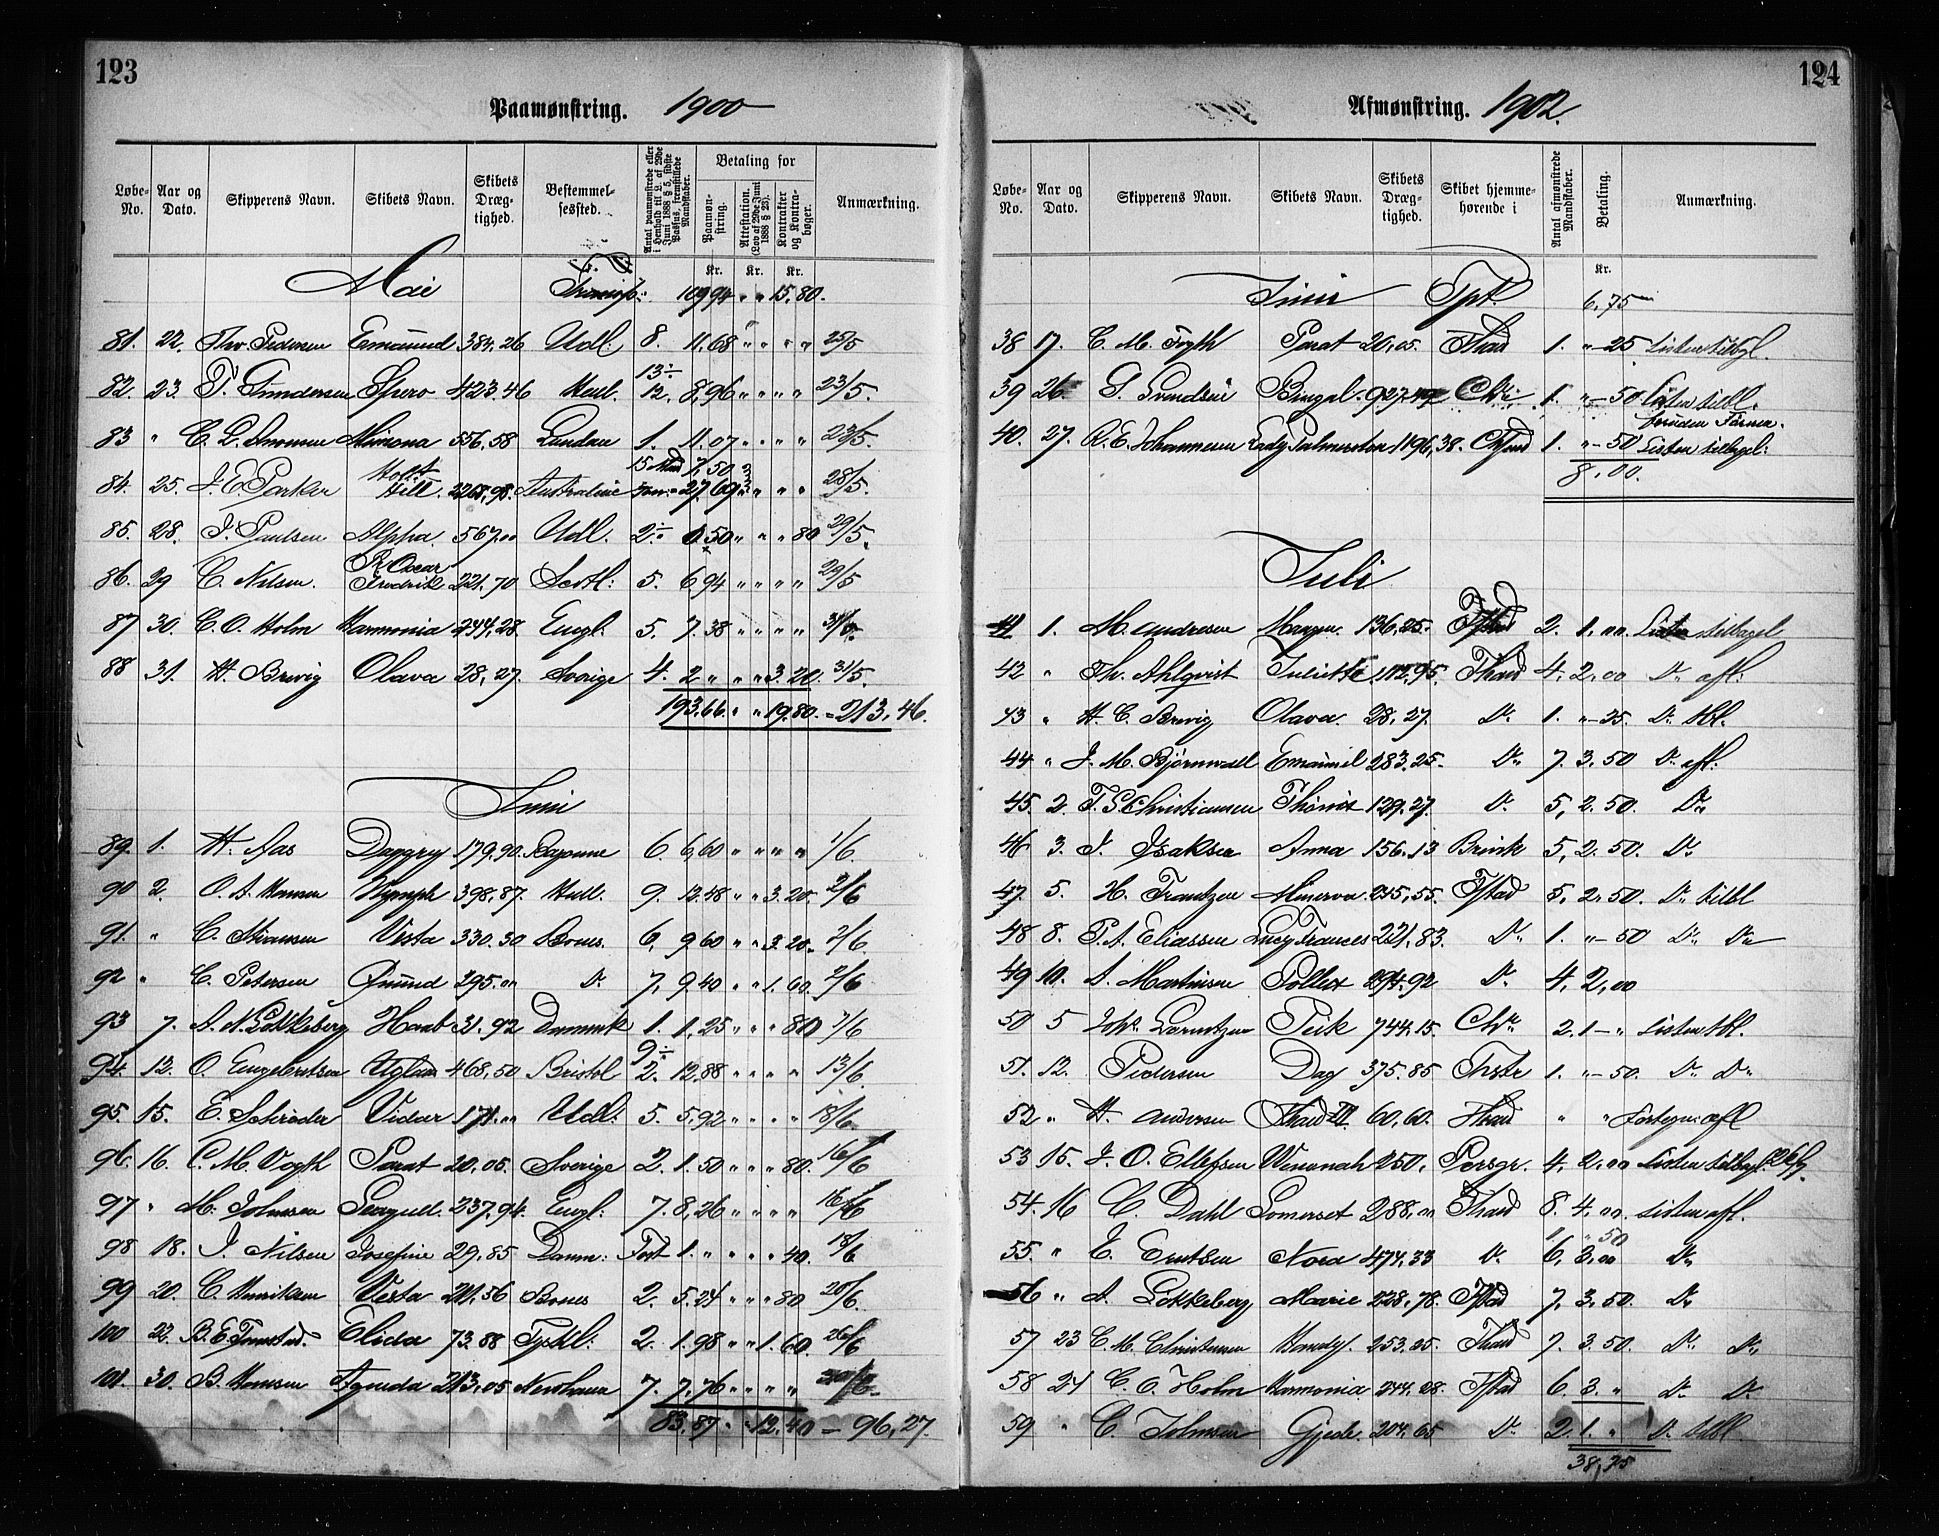 123
Paamønstring. 1900
Løbe-No. Aar og Dato. Skipperens Navn. Skibets Navn. Skibets Dræg-tighed. Bestemmel-sessted. Antal paamønstrede eller i Henhold til L. af 29de Juni 1888 § 5, sidste Passus, fremstillede Mandskaber. Betaling for Paamøn-string. Attestation. (Lov af 29de Juni 1888 § 23). Kontrakter og Kontra-bøger. Anmærkning.
Kr. Kr. Kr.
Mai 109 94 " " 15.80.
81. 22. Thv Pedersen Edmund 384,26 Udl. 8. 11,68 " " " " 23/5
82. 23. T. Gundersen Spero 423.46 Hull. 13 ÷ 12. 8,96 " " " " 23/5.
83 " C. L. Simonsen Mimona 556.58 London 1. 11.07 " " " " 23/5.
84. 25. J. E. Parker Holt Hill 2265,98. Australien 15 7,50 27.69 " " " 28/5.
85. 28. J. Paulsen Alpha. 567.00 Udl. 2 ÷ 0.50 " " " 80 29/5.
86. 29 C. Nilsen. R. Oscar Fredrik 221.70 Scotl: 5. 6 94 " " " " 29/5
87 30. C. O. Holm Harmonia 244,28. Engl: 5. 7.38 " " " "
88 31. H. Brevig Olava 28,27. Sverige 4. 2 " " " 3.20. 31/5.
193.66. " " 19.80. = 213,46.
Juni
89. 1. H. Aas Daggry 179,90. Bayonne 6. 6,60 " " " " 1/6.
90 2. O. A. Hansen Nymph 398,87. Hull. 9. 12.48 " " 3.20. 2/6
91. " C. Stiansen Vesta 330.30 Bones. 6. 9 60 " " 3.20. 2/6
92 " C. Petersen Ømund 295.00 Do 7. 9.40 " " 1.60. 2/6
93 7. A. N. Løkkeberg Haab 31.92 Danmark 1. 1,25 " " " 80 7/6
94. 12. O. Engebretsen Uglan 468,50 Bristol 9 ÷ 2. 12.88 " " " " 13/6
95. 15. E. Schrøder Vidar 171.00 Udl: 5. 5.92 " " " " 18/6
96. 16. C. M. Vogth Parat 20,05. Sverige 2. 1.50 " " " 80. 16/6
97 " M. Johnsen Seagull 237.94. Engl: 7. 8,26 " " " " 16/6
98 18. J. Nilsen Josefine 29,85 Danm: Fort 1. " " " " 40. 18/6
99 20. C. Henriksen Vesta 211,56 Bones 2. 5.24 " " " 80 20/6.
100 22. B. E. Tonstad. Elida 73.88 Tyskl: 2. 1.98 " " 1.60. 26/6
101. 30. B. Hansen Agenda 213,05 Newhaven 7. 7,76 " " " "
83,87 " " 12.40 = 96,27.
124
Afmønstring. 1902.
Løbe-No. Aar og Dato. Skipperens Navn. Skibets Navn. Skibets Dræg-tighed. Skibet hjemme-hørende i Antal afmønstrede Mandskaber. Betaling. Anmærkning.
Kr.
Juni Tpt. 6,75
38 17. C. M. Fogth Parat 20,05. Fhald 1. " - 25 Listen tilbgl.
39 26 S. Svendsen Bengal. 927.49 Chr: 1. " - 50 Listen tilbl.
foruden Førren.
40. 27. R. E. Johannesen Lady Palmerston 1196,38. 1. " - 50 Listen tilbgel:
8.00.
Juli
41 1. M. Andresen Magen. 136,25. Fstad 2. 1.00 Listen tilbagel
42 " Th. Ahlqvist Juliette. 112.95. Fhald 4. 2,00 Do afl:
43 " H. C. Brevig Olava. 28,27. Do 1. " - 25. Do tbl.
44 " J. M. Bjørnvall Emanuel 283.25. Do 7. 3,50 Do afl:
45. 2. T. G. Christiansen Thorvit 129.27. Do 5, 2.50. Do
46 3. J. Isaksen Anna 156.13 Brevik 5, 2.50. Do
47. 5. H. Frantzen Minerva 245,55. Fstad 5, 2,50. Do tilbl
48 8. P. A. Eliassen Lucy Frances 221,83. Do 1. " - 50 Do Do
49 10. A. Martinsen Pollux 294.92 Do 4, 2,00
50 5 Joh. Lorentzen Teik 744.15. Chr 2. 1 - " Listen tbl.
51. 12. Pedersen Dag 375.85 1. " - 50. Do Do
52 " H. Andersen Fhald III 60,60. Fhald " " Fortegn: afl
53 15. J. O. Ellefsen Wenonah 250, Porsgr. 4. 2,00 Listen tilbagl. 26/7.
54. 16 C. Dahl Somerset 288,00 Fhald 8. 4,00 Listen afl.
55. " E. Erntsen Nora 474,33 Do 6, 3,00 Do
1 " 50
56 " A. Løkkeberg Marie 228,78. Fstad 7. 3,50. Do
57 23 C. M. Christensen 253.05. Fhald 7. 3.50 Do Do
58 24 C. O. Holm Harmonia 244.28. Fstad 6. 3. " Do Do
59 " C. Johnsen Gjede. 204,65 Do 2. 1. " Do tilbl.
38,75